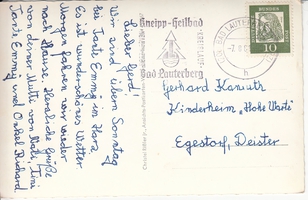 Lieber Gerd!
Wir sind übern Sonntag
bei Tante Emma im Harz
Es ist wunderschönes Wetter
Morgen fahren wir wieder
nach Hause. Herzliche Grüße
von deiner Mutti, von
Tante Emma und Onkel Richard
Kneipp-Heilbad
Bad Lauterberg
BAD LAUTERBERG
h
DEUTSCHE
10
Gerhard
Kinderheim "Hohe Warte"
Egestorf, Deister